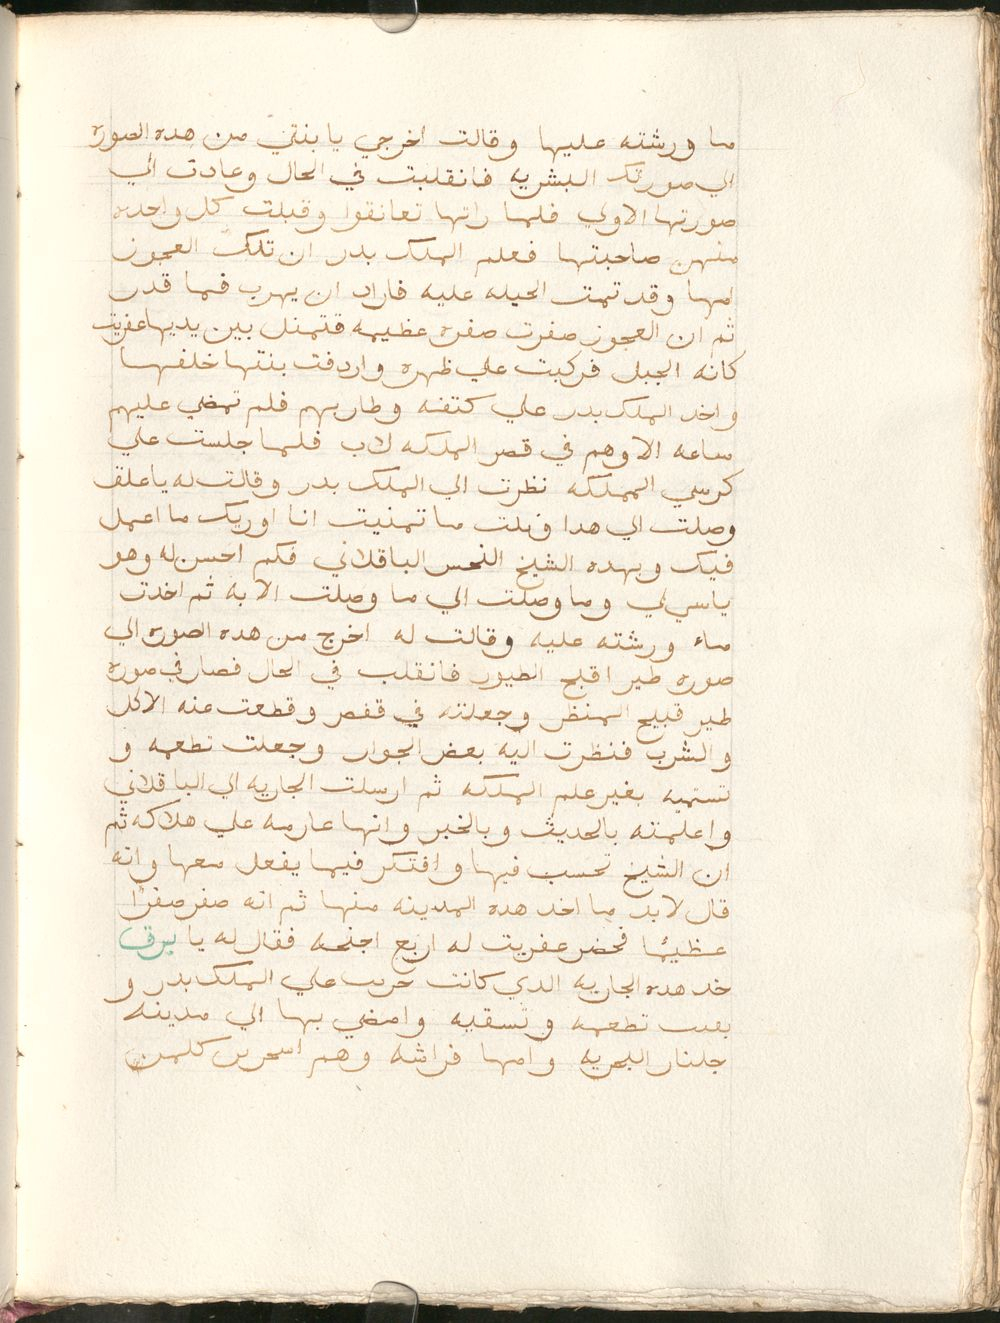 ما ورشته عليها وقالت اخرجي يا بنتي من هده الصوره
الي صورتك البشريه فانقلبت في الحال وعادت الي
صورتها الاولي فلما راتها تعانقوا وقبلت كل واحده
منهن صاحبتها فعلم الملك بدر ان تلك العجوز
امها وقد تمت الحيله عليه فاراد ان يهرب فما قدر
ثم ان العجوز صفرت صفره عظيمه فتمثل بين يديها عفريت
كانه الجبل فركبت علي ظهره واردفت بنتها خلفها
واخد الملك بدر علي كتفه وطار بهم فلم تمضي عليهم
ساعه الا وهم في قصر الملكه لاب فلما جلست علي
كرسي المملكه نظرت الي الملك بدر وقالت له يا علق
وصلت الي هدا ونلت ما تمنيت انا اوريك ما اعمل
فيك وبهده الشيخ النحس الباقلاني فكم احسن له وهو
ياسي لي وما وصلت الي ما وصلت الا به ثم اخدت
ماء ورشته عليه وقالت له اخرج من هده الصوره الي
صوره طير اقبح الطيور فانقلب في الحال فصار في صوره
طير قبيح المنظر وجعلته في قفص وقطعت عنه الاكل
والشرب فنظرت اليه بعض الجوار وجعلت تطعمه و
تسقيه بغير علم الملكه ثم ارسلت الجاريه الي الباقلاني
واعلمته بالحديث وبالخبر وانها عازمه علي هلاكه ثم
ان الشيخ تحسب فيها وافتكر فيما يفعل معها وانه
قال لابد ما اخد هده المدينه منها ثم انه صفر صفرًا
عظيمًا فحضر عفريت له اربع اجنحه فقال له يا برق
خد هده الجاريه الدي كانت حزنت علي الملك بدر و
بقت تطعمه وتسقيه وامضي بها الي مدينه
جلنار البحريه وامها فراشه وهم اسحر من